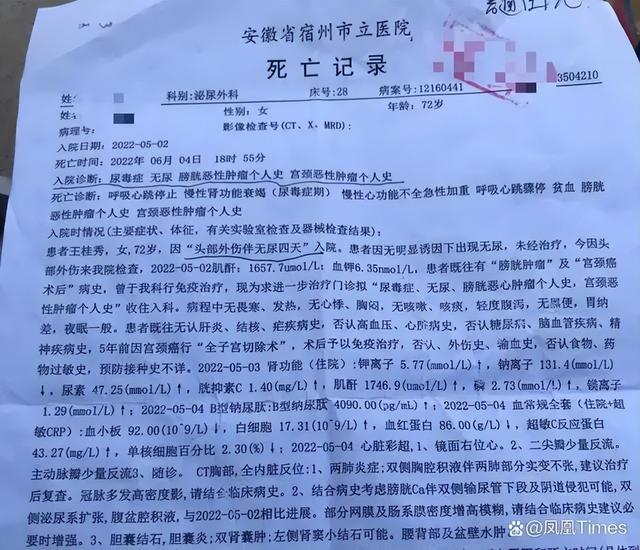 安徽省宿州市立医院
死亡记录
3504210
姓 科别:泌尿外科 床号:28 病案号:12160441
姓 性别:女 年龄:72岁
病理号: 影像检查号(CT、X、MRD):
入院日期:2022-05-02
死亡时间:2022年 06月 04日 18时 55分
入院诊断:尿毒症 无尿 膀胱恶性肿瘤个人史 宫颈恶性肿瘤个人史
死亡诊断:呼吸心跳停止 慢性肾功能衰竭(尿毒症期) 慢性心功能不全急性加重 呼吸心跳骤停 贫血 膀胱
恶性肿瘤个人史 宫颈恶性肿瘤个人史
入院时情况(主要症状、体征,有关实验室检查及器械检查结果):
患者王桂秀,女,72岁,因“头部外伤伴无尿四天”入院。患者因无明显诱因下出现无尿,未经治疗,今因头
部外伤来我院检查,2022-05-02肌酐:1657.7umol/L;血钾6.35nmol/L,患者既往有“膀胱肿瘤”及“宫颈癌
术后”病史,曾于我科行免疫治疗,现为求进一步治疗门诊拟“尿毒症、无尿、膀胱恶心肿瘤个人史、宫颈恶
性肿瘤个人史”收住入科。病程中无畏寒、发热,无心悸、胸闷,无咳嗽、咳痰,轻度腹泻,无黑便,胃纳
差,夜眠一般。患者既往无认肝炎、结核、疟疾病史,否认高血压、心脏病史,否认糖尿病、脑血管疾病、精
神疾病史,5年前因宫颈癌行“全子宫切除术”,术后予以免疫治疗,否认、外伤史、输血史,否认食物、药
物过敏史,预防接种史不详。2022-05-03 肾功能(住院):钾离子 5.77(mmol/L)↑,钠离子 131.4(mmol/L
)↓,尿素 47.25(mmol/L)↑,胱抑素C 1.40(mg/L)↑,肌酐 1746.9(umol/L)↑,磷 2.73(mmol/L)↑,镁离子
1.29(mmol/L)↑;2022-05-04 B型钠尿肽:B型钠尿肽 4090.00(pg/mL)↑;2022-05-04 血常规全套(住院+超
敏CRP):血小板 92.00(10^9/L)↓,白细胞 17.31(10^9/L)↑,血红蛋白 86.00(g/L)↓,超敏C反应蛋白
43.27(mg/L)↑,单核细胞百分比 2.30(%)↓;2022-05-04 心脏彩超,1、镜面右位心。2、二尖瓣少量反流。
主动脉瓣少量反流3、随诊。 CT胸部,全内脏反位:1、两肺炎症;双侧胸腔积液伴两肺部分实变不张,建议治疗
后复查。冠脉多发高密度影,请结合临床病史。2、结合病史考虑膀胱Ca伴双侧输尿管下段及阴道侵犯可能,双
侧泌尿系扩张,腹盆腔积液,与2022-05-02相比进展。部分网膜及肠系膜密度增高模糊,请结合临床病史建议必
要时增强。3、胆囊结石,胆囊炎;双肾囊肿;左侧肾窦小结石可能。腰背部及盆壁水肿
@凤凰Times